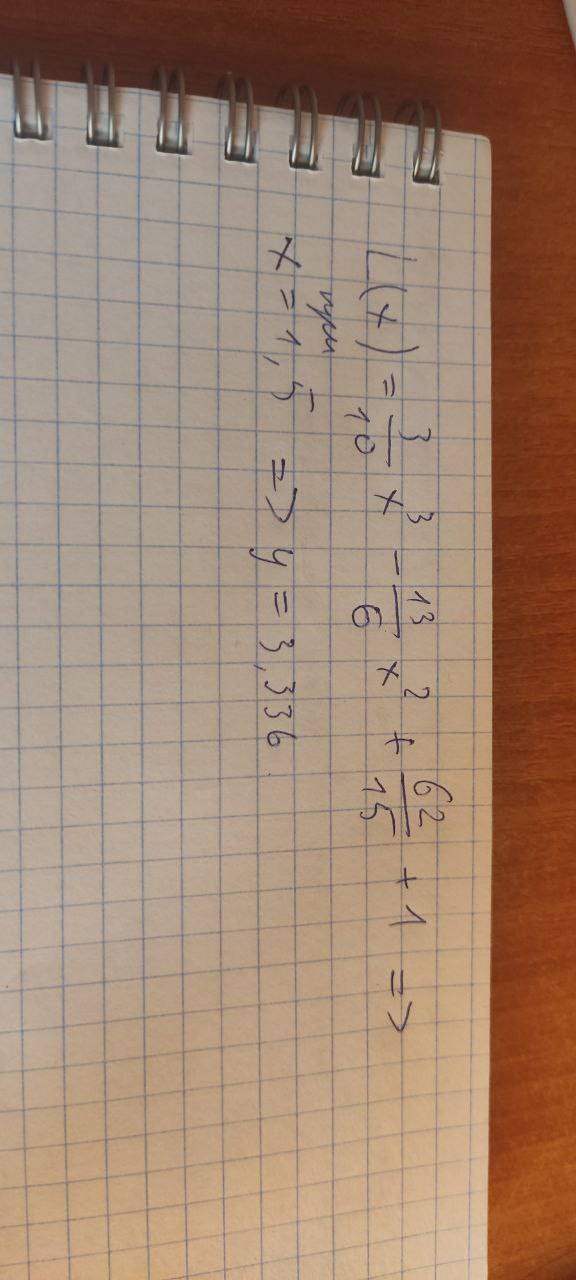 L(x) = 3/10 x^3 - 13/6 x^2 + 62/15 + 1 =>
при
x = 1,5 => y = 3,336